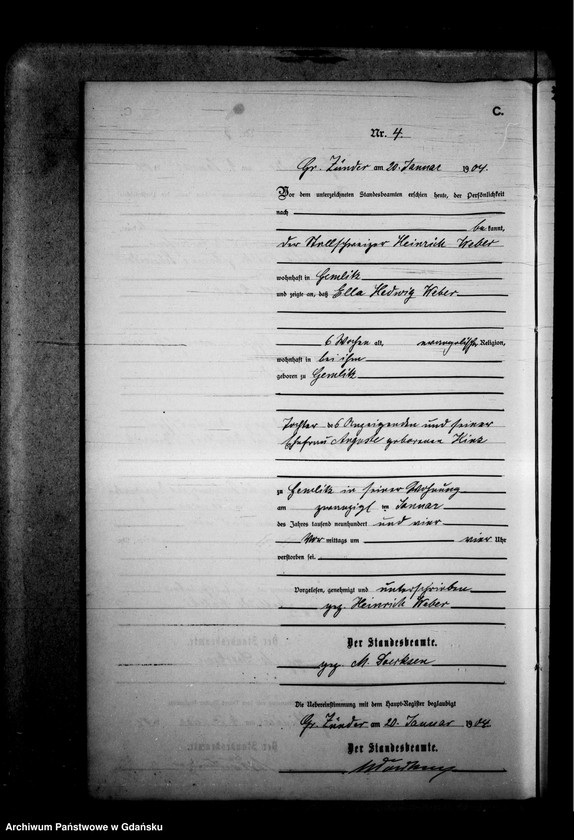 C.
Nr. 4.
Gr. Zünder am 20. Januar 1904.
Vor dem unterzeichneten Standesbeamten erschien heute, der Persönlichkeit
nach
bekannt,
der Stallschweizer Heinrich Weber
wohnhaft in Gemlitz
und zeigte an, daß Ella Hedwig Weber
6 Wochen alt, evangelischer Religion,
wohnhaft in bei ihm
geboren zu Gemlitz
Tochter des Anzeigenden und seiner
Ehefrau Auguste geborenen Hinz
zu Gemlitz in seiner Wohnung
am zwanzigsten Januar
des Jahres tausend neunhundert und vier
Vormittags um vier Uhr
verstorben sei.
Vorgelesen, genehmigt und unterschrieben
gez. Heinrich Weber
Der Standesbeamte.
gez. M. Doerksen
Die Uebereinstimmung mit dem Haupt-Register beglaubigt
Gr. Zünder am 20. Januar 1904
Der Standesbeamte.
Archiwum Państwowe w Gdańsku